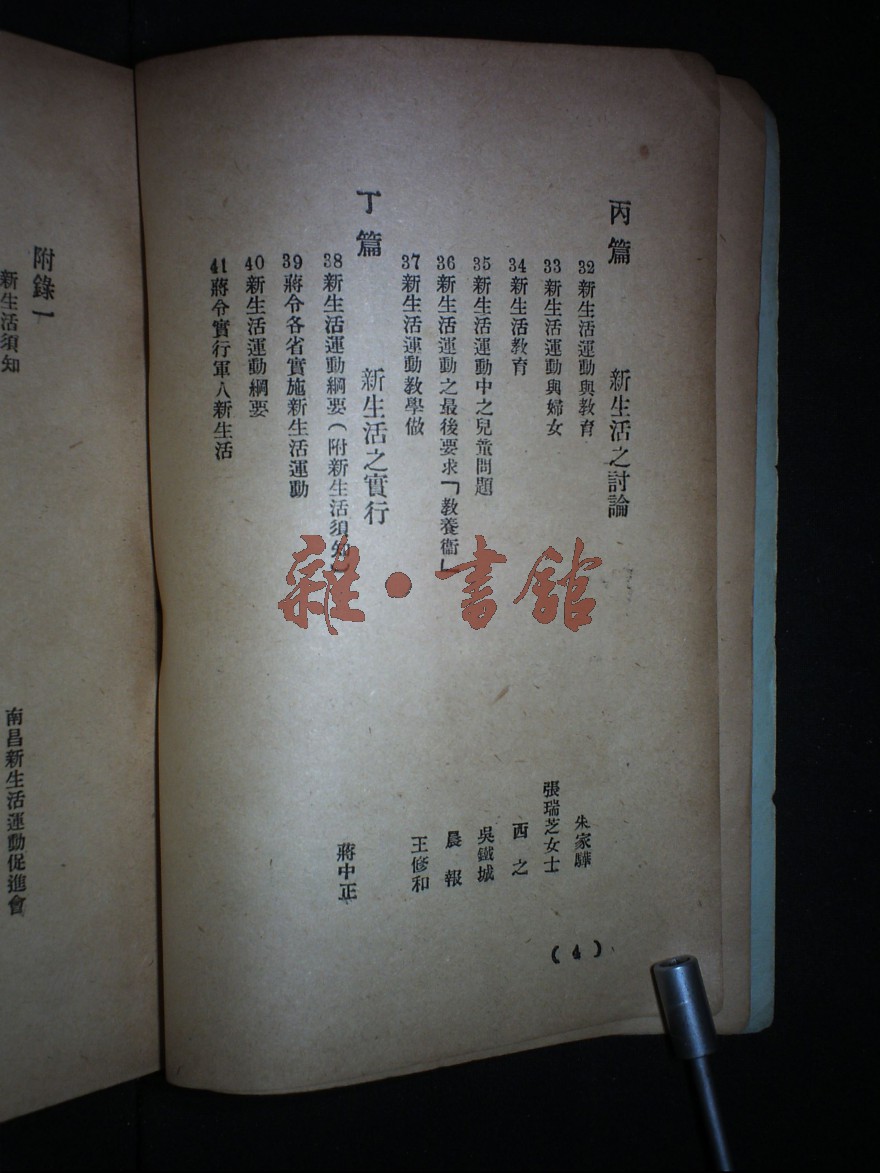 丙篇　新生活之討論
32 新生活運動與教育　朱家驊
33 新生活運動與婦女　張瑞芝女士
34 新生活教育　西之
35 新生活運動中之兒童問題　吳鐵城
36 新生活運動之最後要求「教養衞」　晨報
37 新生活運動教學做　王修和
丁篇　新生活之實行
38 新生活運動綱要（附新生活須知）　蔣中正
39 蔣令各省實施新生活運動
40 新生活運動綱要
41 蔣令實行軍人新生活
(4)
附錄一
新生活須知　南昌新生活運動促進會
雜·書館